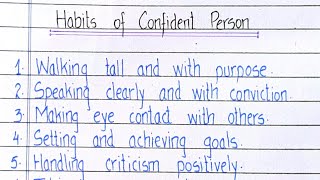 Habits of Confident Person
1. Walking tall and with purpose.
2. Speaking clearly and with conviction.
3. Making eye contact with others.
4. Setting and achieving goals.
5. Handling criticism positively.